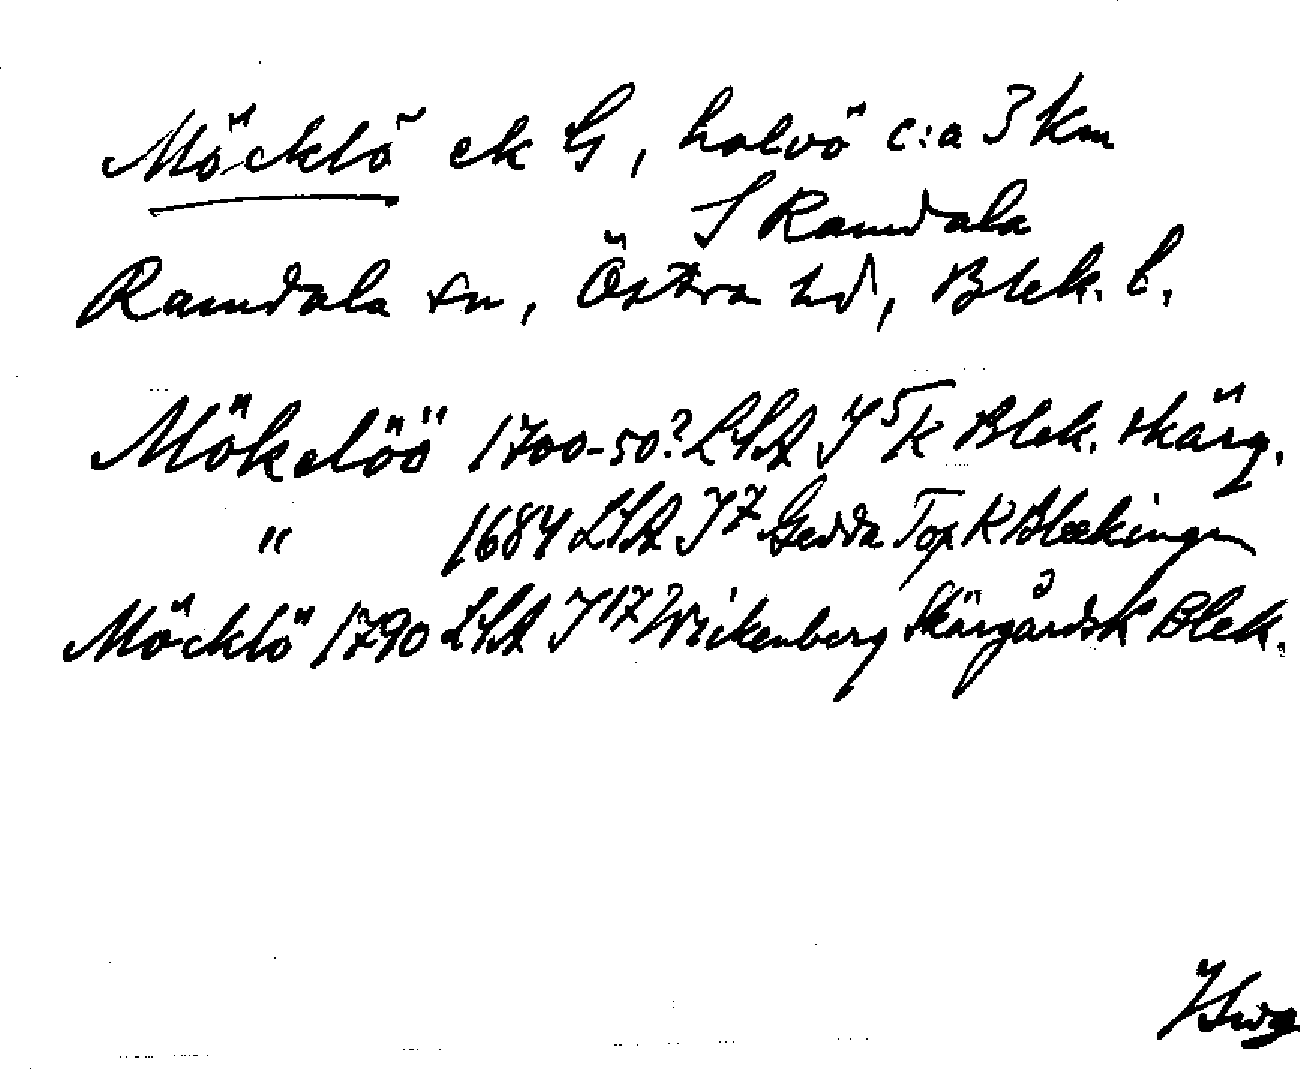 Möcklö ek G, halvö c:a 3 Km
S Ramdala
Ramdala sn, Östra hd, Blek. l.
Mökelöö 1700-50? LSA J 5 K Blek. skärg.
" 1684 LSA J 7 Gedda Top K Bleckingen
Möcklö 1790 LSA J 17 Wickenberg SkärgårdsK Blek.